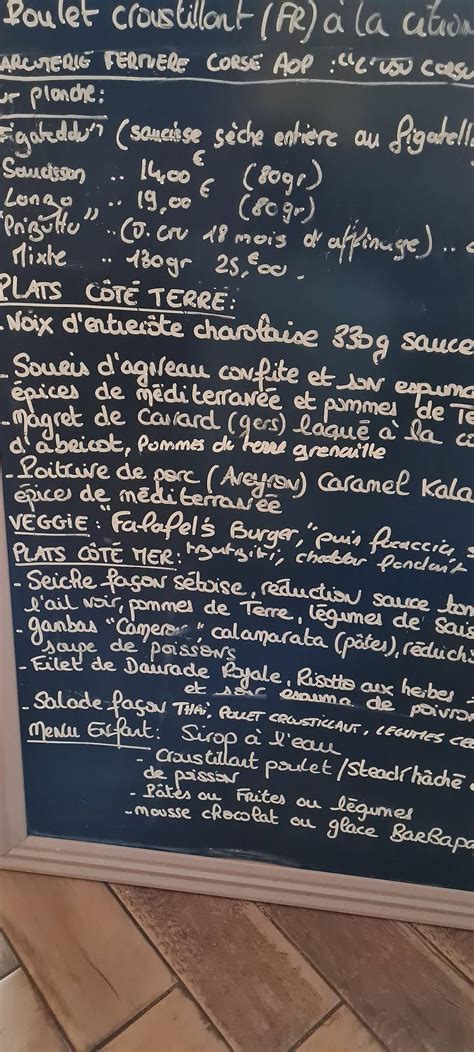 Poulet croustillant (FR) à la citron
ARCUTERIE FERMIERE CORSE AOP : "L'USU CORSU
ur planche:
Figateddu" (saucisse sèche entière au figatell
Saucisson .. 14,00€ (80gr)
Lonzo .. 19,00€ (80gr)
"Prizuttu" .. (J. cru 18 mois d'affinage) ..
Mixte .. 130gr 25,€00.
PLATS CÔTÉ TERRE:
- Noix d'entrecôte charolaise 330g sauce
- Souris d'agneau confite et son espuma
épices de méditerranée et pommes de Te
- Magret de Canard (gers) laqué à la
d'abricot, Pommes de terre grenaille
- Poitrine de porc (Aveyron) Caramel Kala
épices de méditerranée
VEGGIE: "Falafel's Burger," pain focaccia,
PLATS CÔTÉ MER: cheddar fondant
- Seiche façon sétoise, réduction sauce tom
l'ail noir, pommes de Terre, légumes de Sais
- gambas "Cameron", calamarata (pâtes), réduct
soupe de poissons
- Filet de Daurade Royale, Risotto aux herbes
et son espuma de poivro
- Salade façon THAÏ, POULET CROUSTILLANT, LÉGUMES
Menu Enfant: Sirop à l'eau
- Croustillant poulet / Steack hâché
de poisson
- Pâtes ou Frites ou légumes
- mousse chocolat ou glace BarBapa